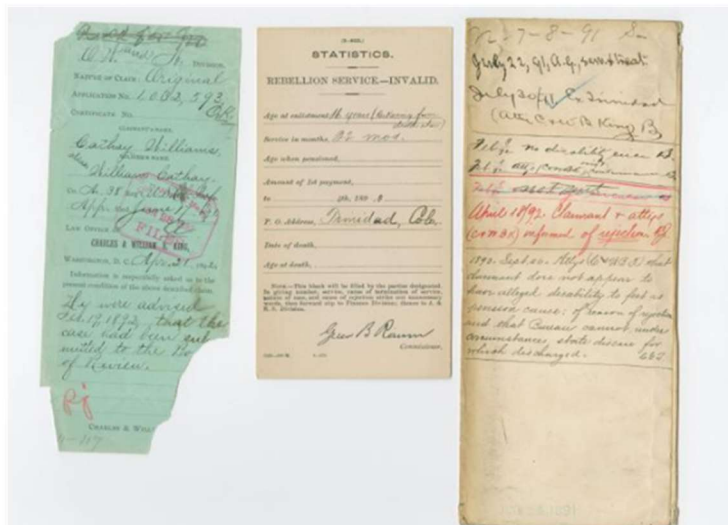 DIVISION.
NATURE OF CLAIM: Original
APPLICATION NO. 1.032,593
CERTIFICATE NO.
CLAIMANT'S NAME.
Cathay Williams,
SOLDIER'S NAME.
alias William Cathay.
Co. A. 38 Reg
App.
LAW OFFICE OF
FILED
CHARLES & WILLIAM B. KING,
WASHINGTON, D. C., April 21, 1892.
Information is respectfully asked as to the
present condition of the above described claim.
We were advised
Feb. 17, 1892, that the
case had been sub
mitted to the Bo
of Review.
Rj
CHARLES & WILL
STATISTICS.
REBELLION SERVICE.—INVALID.
Age at enlistment, 16 years
Service in months, 22 mos.
Age when pensioned,
Amount of 1st payment,
to
P. O. Address, Trinidad, Colo.
Date of death,
Age at death,
NOTE.—This blank will be filled by the parties designated.
In giving number, service, cause of termination of service,
and cause of rejection strike out unnecessary
words, then forward slip to Finance Division; thence to A
Division.
Green B Raum
Commissioner.
7-8-91
July 22, 91, A.G., serv & treat.
July 30/91 Ex Trinidad
(Atty C & W B King
no disability
April 18/92 Claimant & attys
(C & W B K) informed of rejection
1892. Sept. 20. Attys (C & W B K) that
claimant does not appear to
have alleged disability to feet as
pension cause; of reason of rejection
and that Bureau cannot, under
circumstances, state disease for
which discharged.